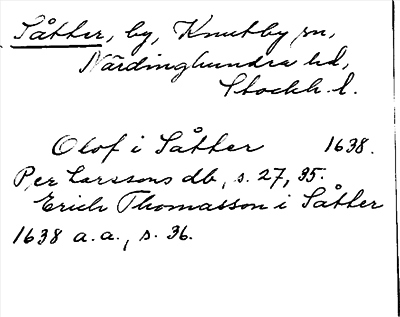 Såtter, by, Knutby sn,
Närdinghundra hd,
Stockh. l.
Olof i Såtter 1638.
Per Larssons db, s. 27, 35.
Erich Thomasson i Såtter
1638 a.a., s. 36.